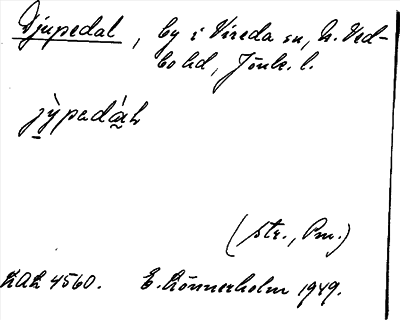 Djupedal, by i Vireda sn, N. Ved-
bo hd, Jönk. l.
jỳpadáh
(str., Pm.)
KAK 4560. E. Rönnerholm 1949.